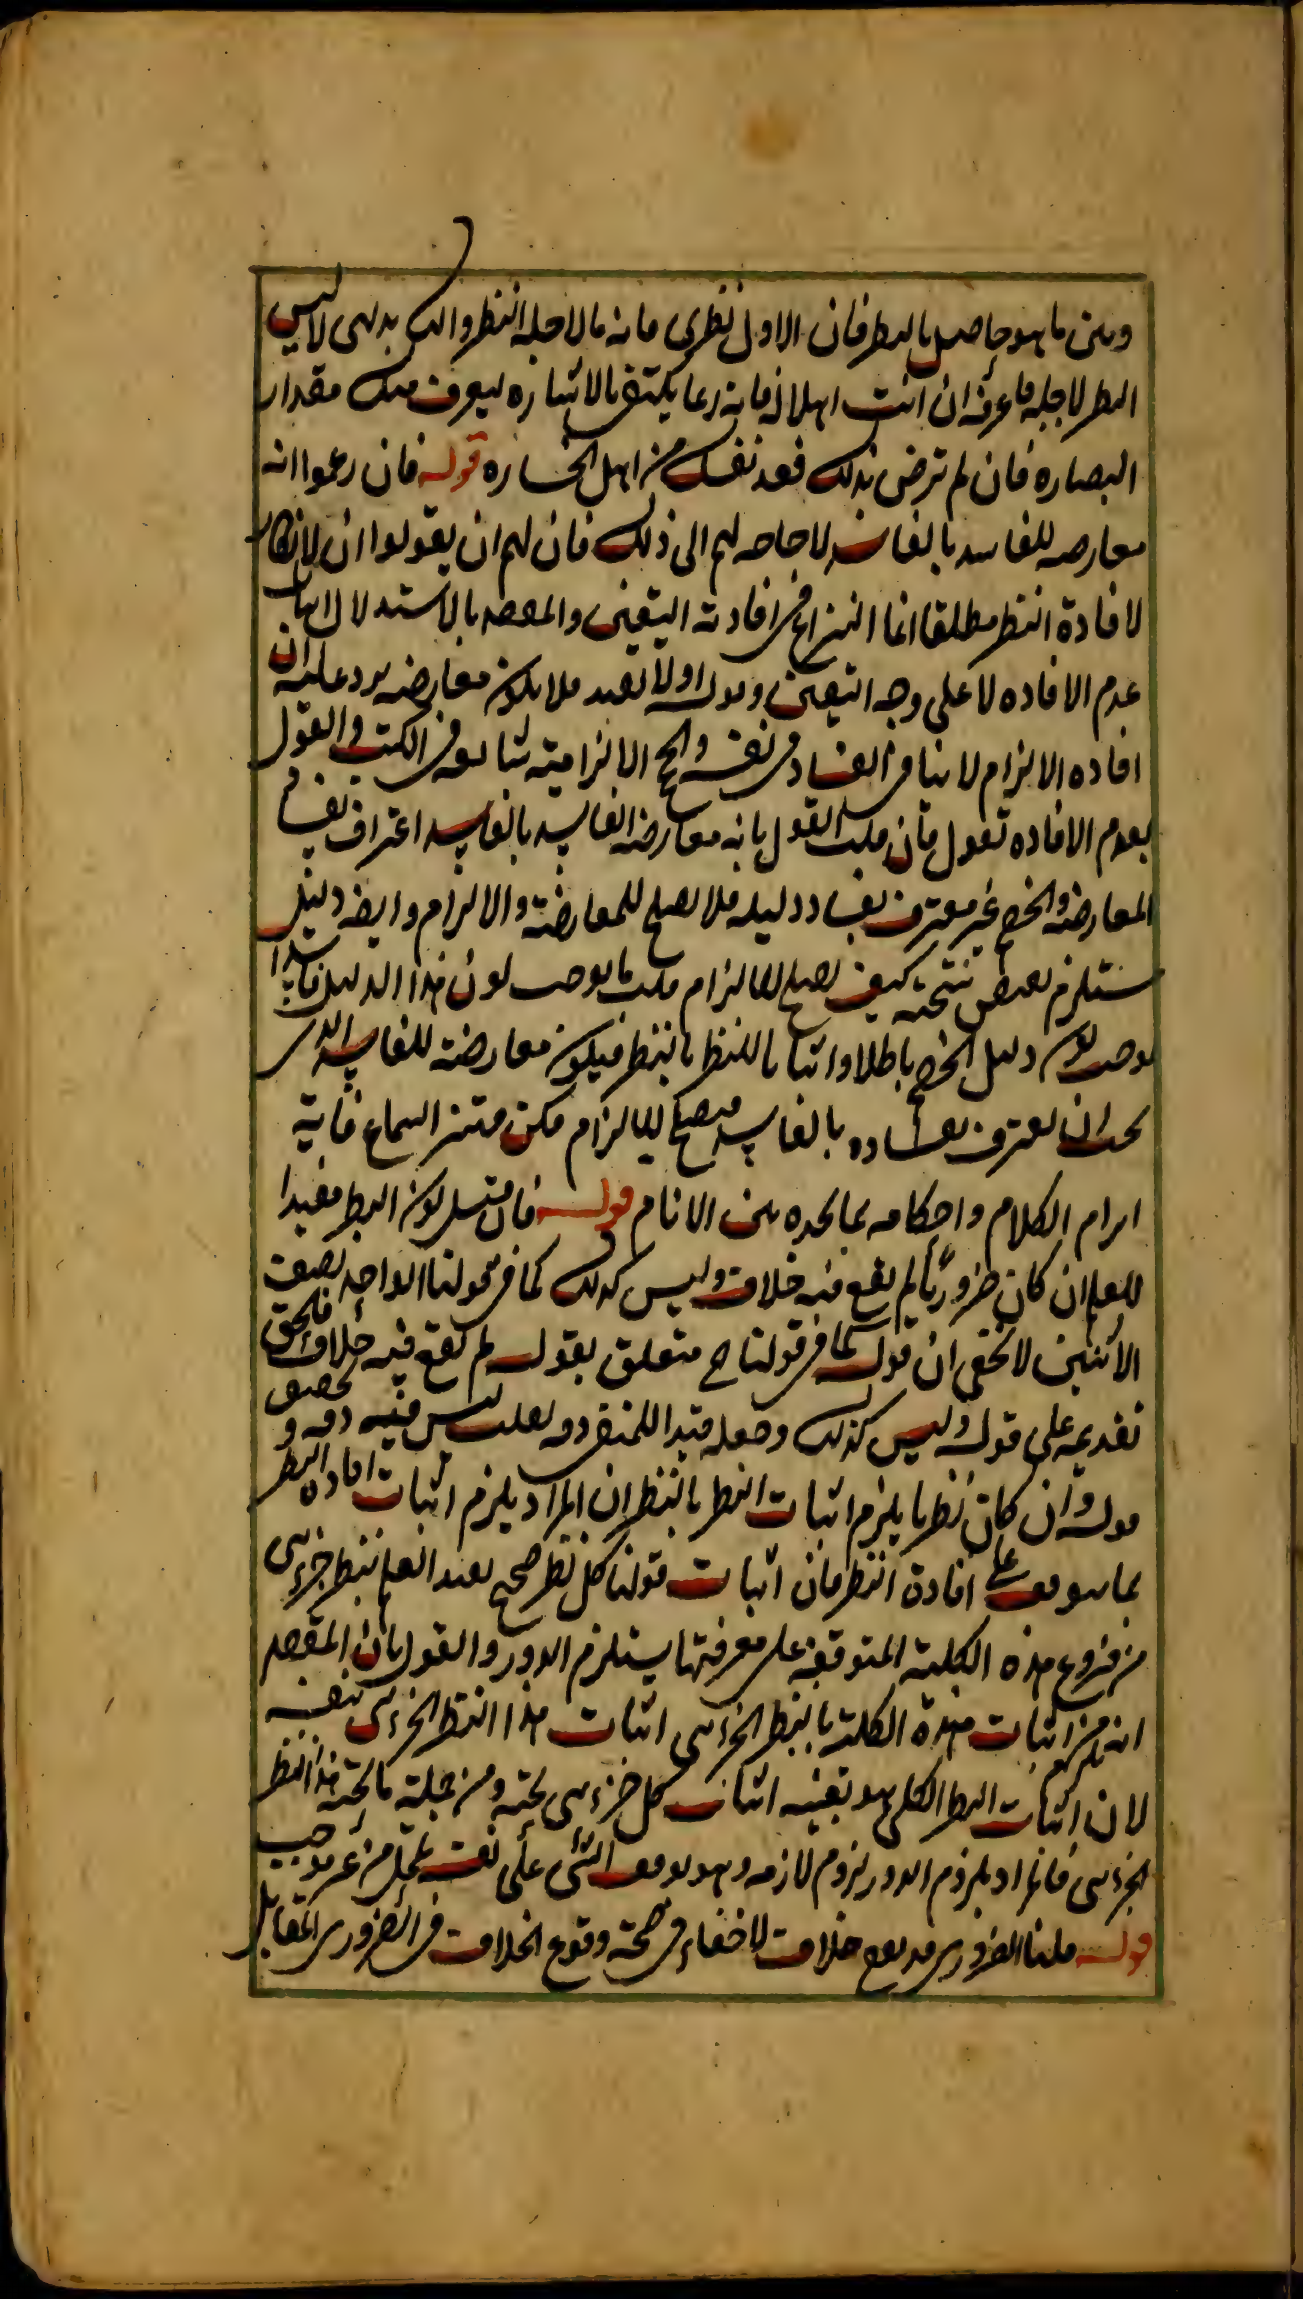 وبين ما هو حاصل بالنظر فان الاول نظرى فانه ما لاجله النظر والثانى بديهى لا ليس
النظر لاجله فاعرفه ان انت اهلا له فانه ربما يكتفى بالاشاره ليعرف منك مقدار
البصاره فان لم ترض بذلك فعد نفسك من اهل الخساره قوله فان زعموا انه
معارضه للفاسد بالفاسد لا حاجه لهم الى ذلك فان لهم ان يقولوا ان لا انكار
لافادة النظر مطلقا انما النزاع فى افادته اليقين والمقصد بالاستدلال اثبات
عدم الافاده لا على وجه اليقين وقوله اولا يفيد فلا يكون معارضه يرد عليه ان
افاده الالزام لا ينافى الفساد فى نفسه والحجج الالزاميه شائعه فى الكتب والقول
بعدم الافاده تقول فان قلت القول بانه معارضه الفاسد بالفاسد اعتراف بفساد
المعارضه والخصم غير معترف بفساد دليله فلا يصلح للمعارضة والالزام وايضه دليل
يستلزم نقيض نتيجته كيف يصلح للالزام قلت ما يوجب كون هذا الدليل فاسدا
يوجب كون دليل الخصم باطلا واثباتا للنظر بالنظر فيكون معارضة للفاسد الذى
يجب ان يعترف بفساده بالفاسد فيصلح للالزام فكن متنزا لسماع غاية
ابرام الكلام واحكامه بما تجده بين الانام قوله فان قيل كون النظر مفيدا
للعلم ان كان ضروريا لم يقع فيه خلاف وليس كذلك كما فى قولنا الواحد نصف
الاثنين لا يخفى ان قوله كما فى قولنا ح متعلق بقوله لم يقع فيه خلاف فالحق
تقديمه على قوله وليس كذلك وجعله قيدا للمنفى دفه تعلب ليس فيه دفه و تحصيف
قوله وان كان نظريا يلزم اثبات النظر بالنظر ان المراد يلزم اثبات افاده النظر
بما هو موقوف على افادة النظر فان اثبات قولنا كل نظر صحيح يفيد العلم بنظر جزءى
من فروع هذه الكلية المتوقفه على معرفتها يستلزم الدور والقول بان المقصد
انه يلزم من اثبات هذه الكلية بالنظر الجزءى اثبات هذا النظر الجزءى بنفسه
لان اثبات النظر الكلى هو بعينه اثبات كل جزءى تحته ومن جملة ما تحته هذا النظر
الجزءى فالمراد بلزوم الدور لزوم لازمه وهو توقف الشىء على نفسه تمحل من غير موجب
قوله قلنا الضرورى قد يقع خلاف لا خفاء فى صحة وقوع الخلاف فى الضرورى المقابل